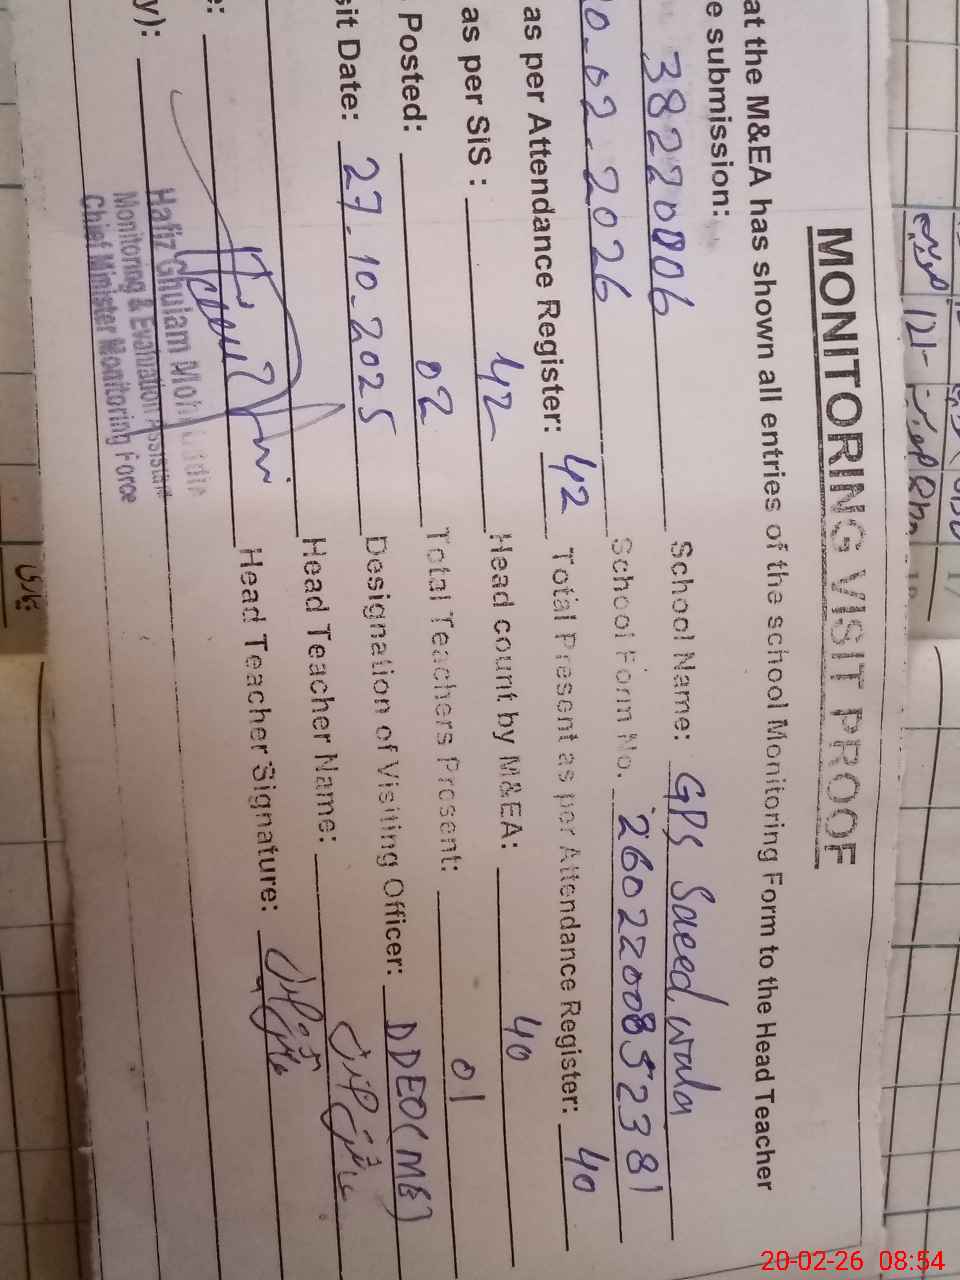 MONITORING VISIT PROOF
at the M&EA has shown all entries of the school Monitoring Form to the Head Teacher
e submission:
38220006 School Name: GPS Saeed wala
0-02-2026 School Form No. 2602200852381
as per Attendance Register: 42 Total Present as per Attendance Register: 40
as per SiS : 42 Head count by M&EA: 40
Posted: 02 Total Teachers Present: 01
sit Date: 27-10-2025 Designation of Visiting Officer: DDEO(ME)
Head Teacher Name:
e: Head Teacher Signature:
y):
Hafiz Ghulam Moh
Monitoring & Evaluation Assistant
Chief Minister Monitoring Force
121-
20-02-26 08:54